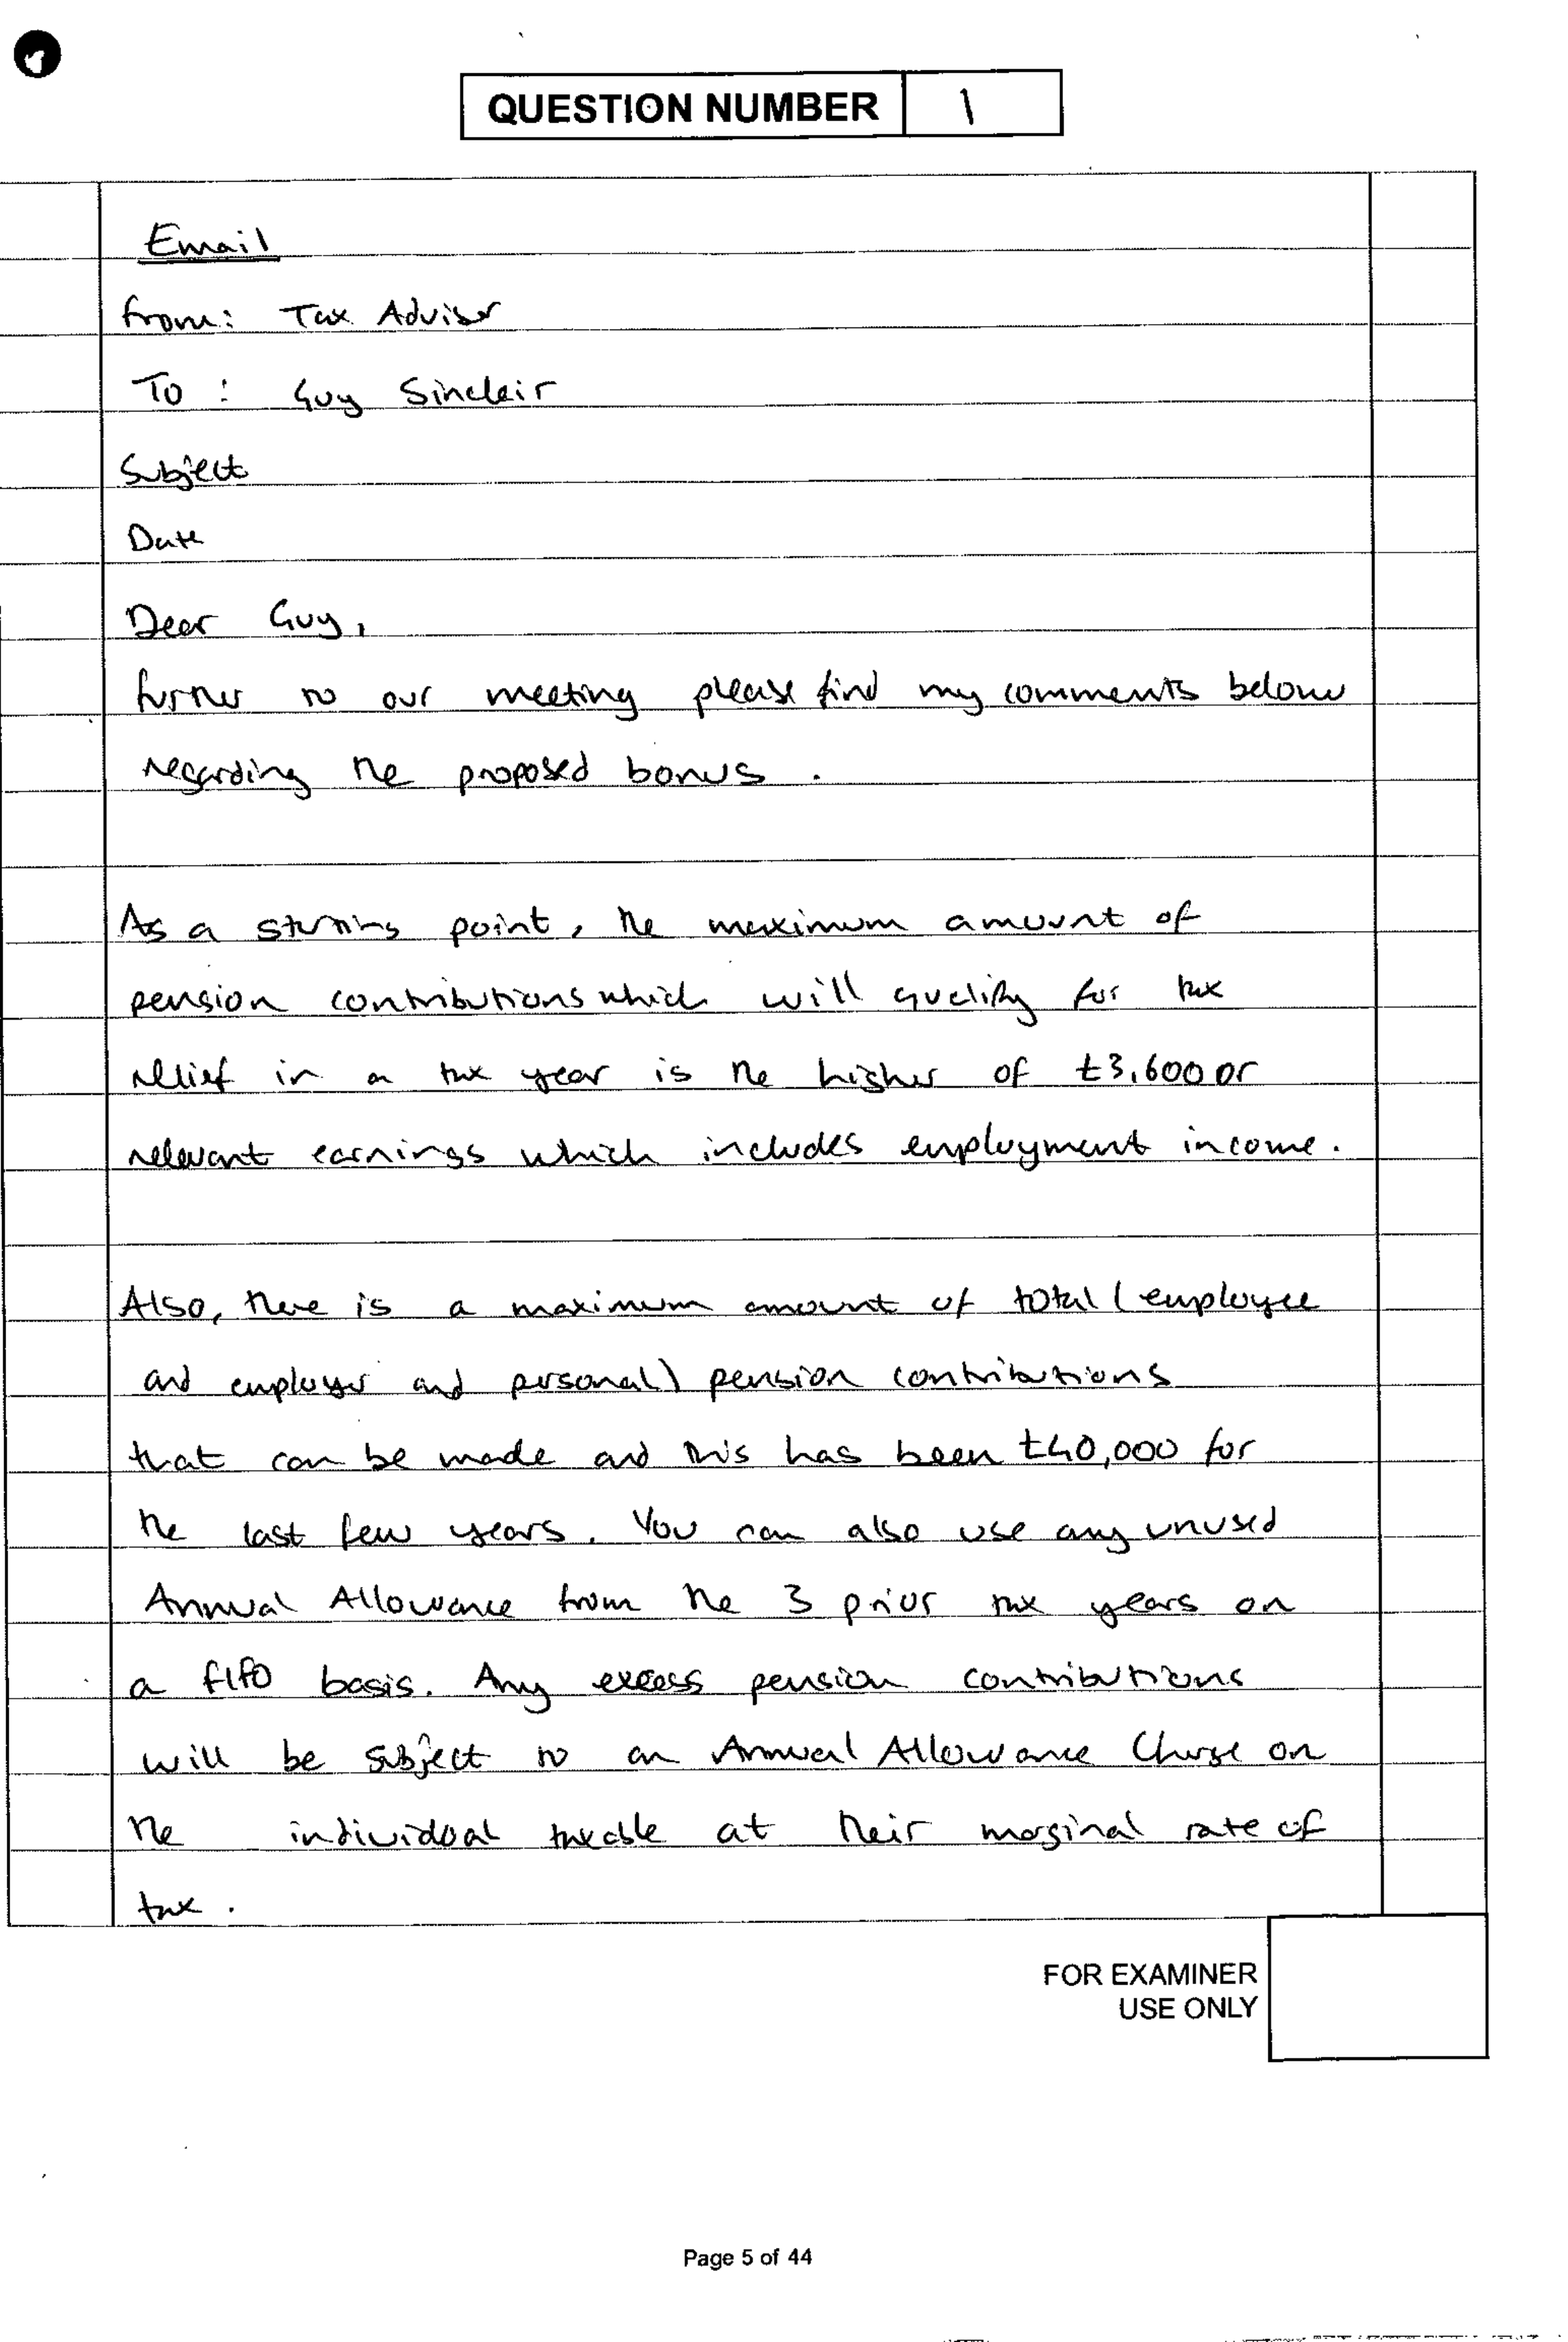 QUESTION NUMBER 1
Email
From: Tax Advisor
To : Guy Sinclair
Subject
Date
Dear Guy,
Further to our meeting please find my comments below
regarding the proposed bonus .
As a starting point, the maximum amount of
pension contributions which will qualify for tax
relief in a tax year is the higher of £3,600 or
relevant earnings which includes employment income.
Also, there is a maximum amount of total (employee
and employer and personal) pension contributions
that can be made and this has been £40,000 for
the last few years. You can also use any unused
Annual Allowance from the 3 prior tax years on
a FIFO basis. Any excess pension contributions
will be subject to an Annual Allowance Charge on
the individual taxable at their marginal rate of
tax .
FOR EXAMINER
USE ONLY
Page 5 of 44